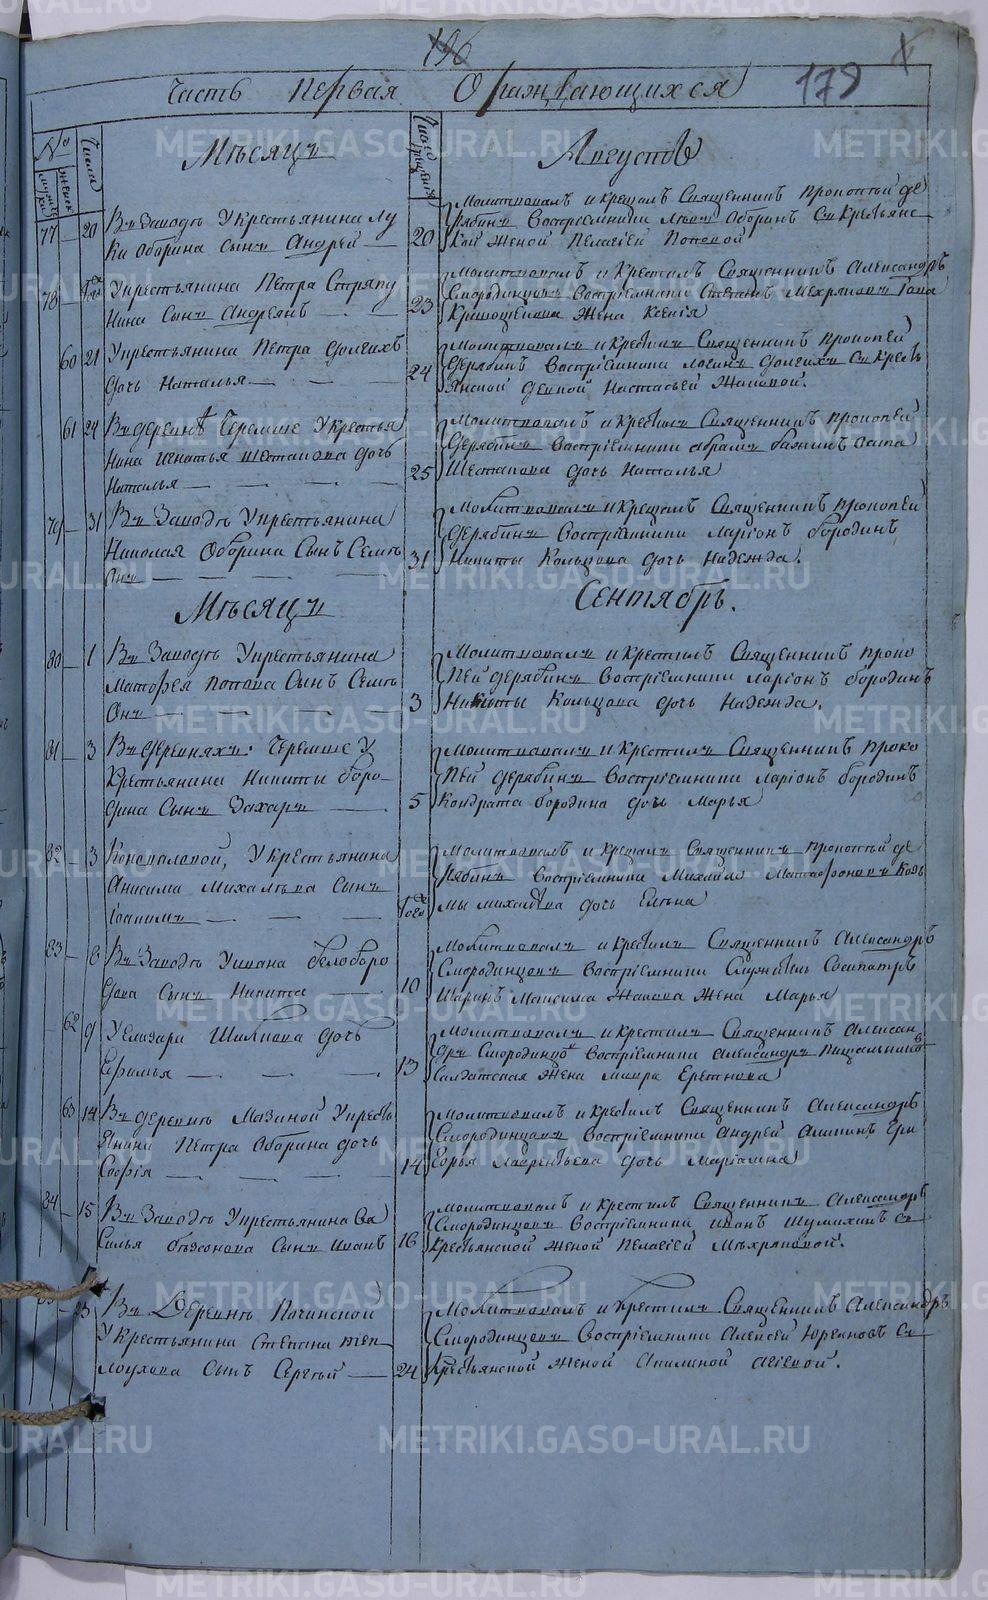 196
179
Часть Первая О раждающихся
№
мужес ка
женск
Числа
Число крещения
Мѣсяцъ Августъ
77 — 20 Въ Заводѣ У крестьянина Лу
ки Оборина Сынъ Андрей —
20 Молитвовалъ и крещалъ Священникъ Прокопѣй де
рябинъ Воспріемники Оборинъ Съ Крестьянс
кой Женой Пелагіей Поповой
78 — Укрестьянина Петра Стряпу
нина Сынъ Андреянъ — —
23 Молитвовалъ и Крестилъ Священникъ Александръ
Смородинцовъ Воспріемники Степанъ Мехряковъ
Кривощекова Жена Ксенія
60 21 Укрестьянина Петра долгихъ
дочь Наталья — — —
24 Молитвовалъ и крестилъ Священникъ Прокопей
Дерябинъ Воспріемники Логинъ Долгихъ Съ Кресть
янской девкой Настасьей Жаковой.
61 24 Въ деревнѣ Черемше У крестья
нина Игнатья Шестакова дочь
Наталья — — — —
25 Молитвовалъ и крестилъ Священникъ Прокопей
Дерябинъ Воспріемники Абрамъ
Шестакова дочь Наталья
79 — 31 Въ Заводѣ Укрестьянина
Николая Оборина Сынъ Семі
онъ — — — —
31 Молитвовалъ и Крещалъ Священникъ Прокопей
Дерябинъ Воспріемники Ларіонъ бородинъ
Никиты Кольцова дочь Надежда.
Мѣсяцъ Сентябрь.
80 — 1 Въ Заводѣ Укрестьянина
Матфея Попова Сынъ Семі
онъ — — —
3 Молитвовалъ и крестилъ Священникъ проко
пей дерябинъ Воспріемники Ларіонъ бородинъ
Никиты Кольцова дочь Надежда.
81 — 3 Въ деревняхъ: Черемше У
Крестьянина Никиты боро-
дина Сынъ Захаръ —
5 Молитвовалъ и Крестилъ Священникъ Проко
пей Дерябинъ Воспріемники Ларіонъ бородинъ
Кондрата бородина дочь Марья
82 — 3 Коноваловой, У крестьянина
Анисима Михалѣва Сынъ
Іоакимъ — — —
Молитвовалъ и крещалъ Священникъ Прокопѣй де
рябинъ Воспріемники Михайло Козь
мы Михалѣва дочь Елена
83 — 8 Въ Заводѣ Уивана белоборо
дова Сынъ Никита —
10 Молитвовалъ и крестилъ Священникъ Александръ
Смородинцовъ Воспріемники Служитель Сосипатръ
Шаринъ Максима Жакова Жена Марья
62 9 Уелизара Шилкова дочь
Ефимья — — —
13 Молитвовалъ и крестилъ Священникъ Алексан
дръ Смородинцовъ Воспріемники Александръ Пищальниковъ
Салдатская Жена Мавра
63 14 Въ деревнѣ Мазиной Укресть
янина Петра Оборина дочь
Софія — — —
14 Молитвовалъ и крестилъ Священникъ Александръ
Смородинцовъ Воспріемники Андрей Гри
горья Лаврентьева дочь Маріамна
84 — 15 Въ Заводѣ Укрестьянина Ва
силья безсонова Сынъ Иванъ
16 Молитвовалъ и Крестилъ Священникъ Александръ
Смородинцовъ Воспріемники иванъ Съ
Крестьянской Женой Пелагіей Мѣхряковой.
85 — Въ Деревнѣ Починской
У Крестьянина Степана теп
лоухова Сынъ Сергѣй —
24 Молитвовалъ и крестилъ Священникъ Александръ
Смородинцовъ Воспріемники Алексей Съ
Крестьянской Женой Акилиной